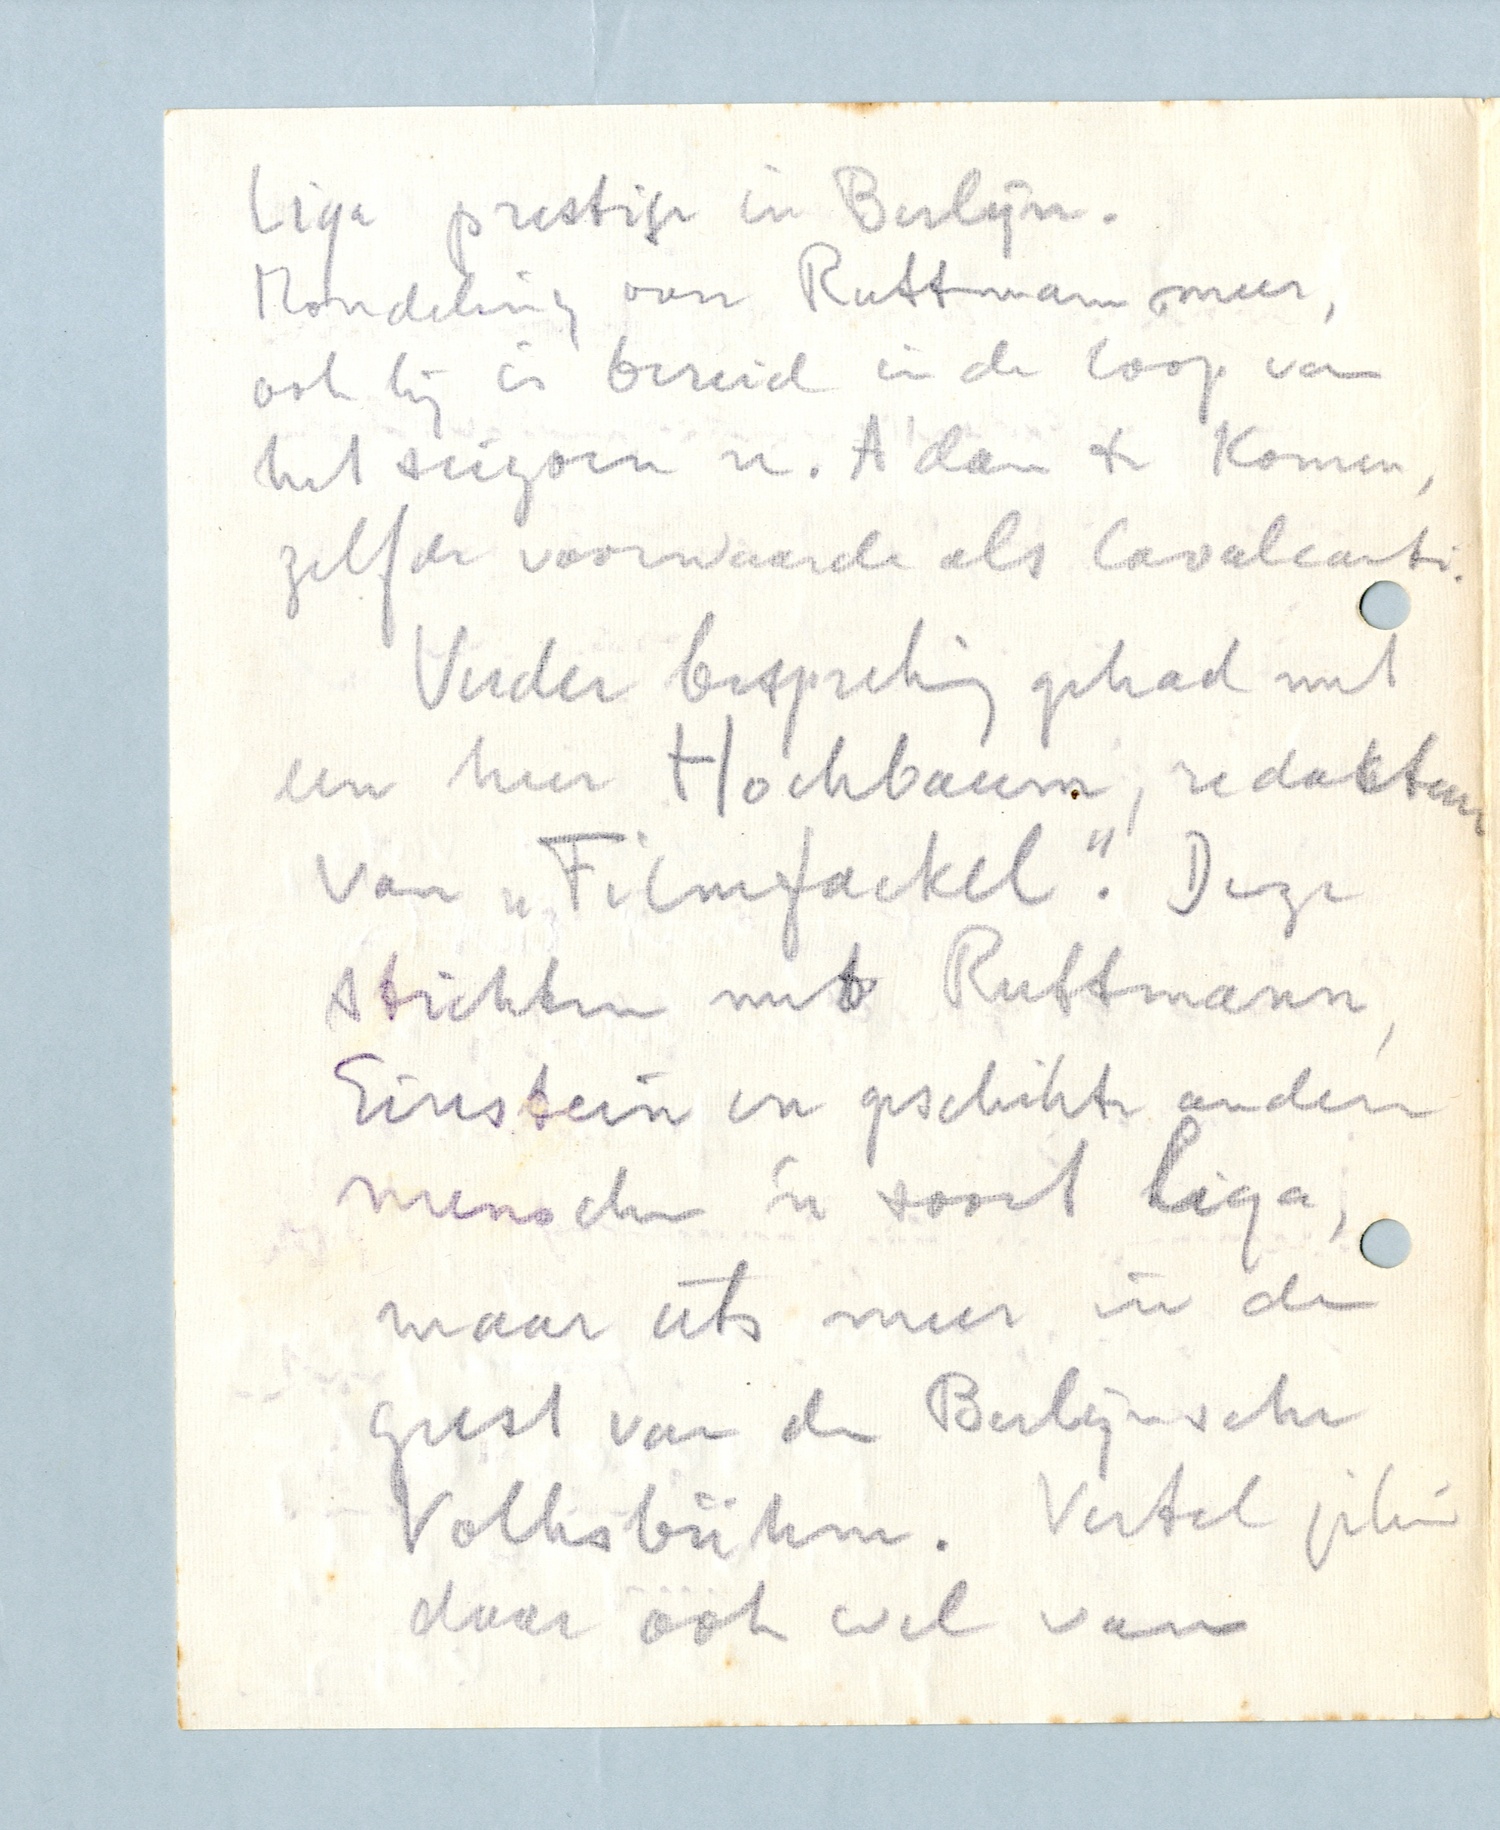 Liga prestige in Berlijn.
Mondeling van Ruttmann meer,
ook hij is bereid in de loop van
het seizoen n. A'dam te komen,
zelfde voorwaarde als Cavalcanti.
Verder bespreking gehad met
een heer Hochbaum, redakteur
van „Filmfackel”. Deze
stichten met Ruttmann,
Einstein en geschikte andere
menschen 'n soort Liga,
maar iets meer in de
geest van de Berlijnsche
Volksbühne. Vertel
daar ook wel van